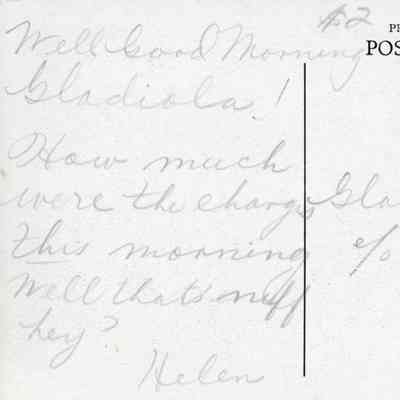 $2
PR
POS
Well Good Morning
Gladiola!
How much
were the charges Gla
this morning c/o
Well that's nuff
hey?
Helen